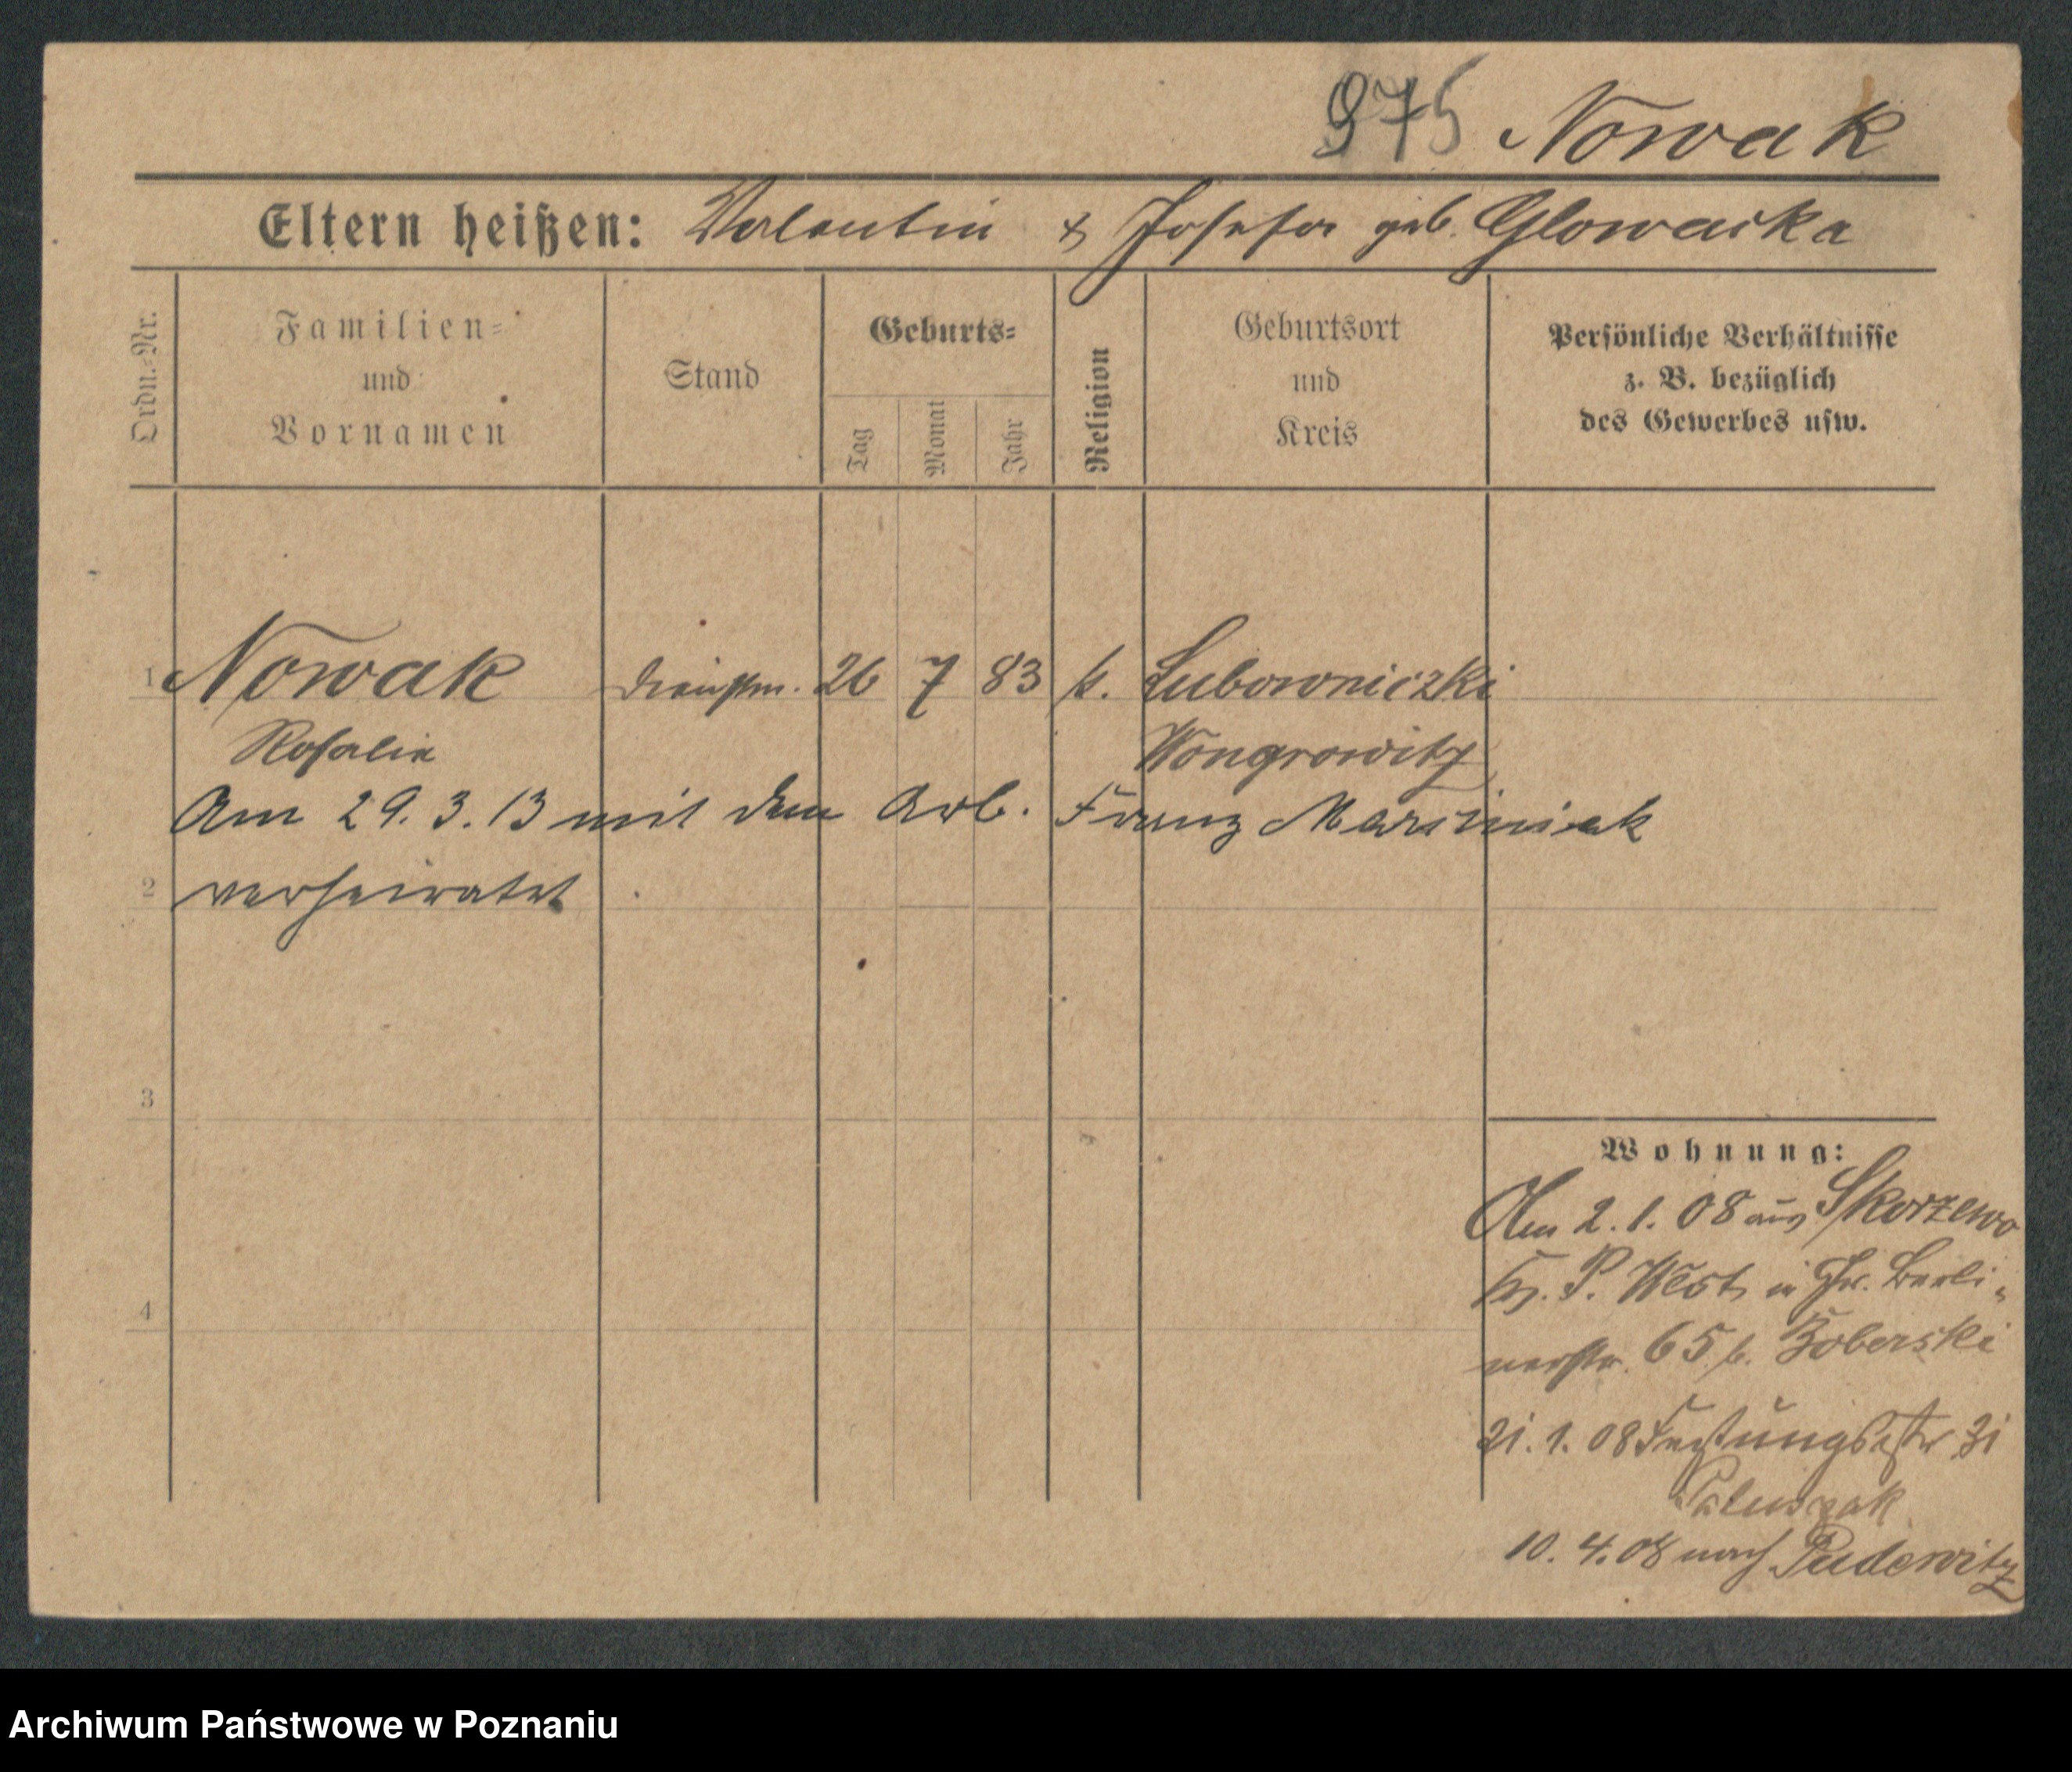 975 Nowak
Eltern heißen: Valentin & Josefa geb. Glowacka
Ordn.-Nr.
Familien-
und
Vornamen
Stand
Geburts-
Tag
Monat
Jahr
Religion
Geburtsort
und
Kreis
Persönliche Verhältnisse
z. B. bezüglich
des Gewerbes usw.
1 Nowak Dienstm. 26 7 83 k. Lubowniczki
Rosalie Wongrowitz
Am 29. 3. 13 mit dem Arb. Franz Marciniak
2 verheiratet
3
Wohnung:
Am 2. 1. 08 aus Skorzewo
Kr. P. West in Gr. Berli-
4
nerstr. 65 b. Boberski
21. 1. 08 Festungsstr 31
Paluszak
10. 4. 08 nach Pudewitz
Archiwum Państwowe w Poznaniu